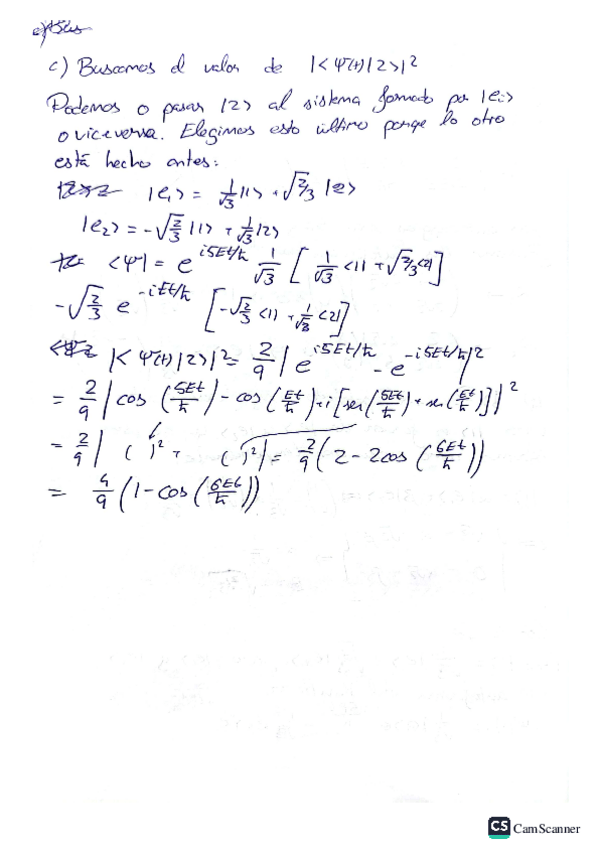 c) Buscamos el valor de |<Ψ(t)|2>|²
Podemos o pasar |2> al sistema formado por |eᵢ>
o viceversa. Elegimos esto último porqe lo otro
está hecho antes:
|e₁> = 1/√3 |1> + √2/3 |2>
|e₂> = -√2/3 |1> + 1/√3 |2>
<Ψ| = e^{i5Et/ħ} 1/√3 [ 1/√3 <1| + √2/3 <2| ]
-√2/3 e^{-iEt/ħ} [ -√2/3 <1| + 1/√3 <2| ]
|<Ψ(t)|2>|² = 2/9 | e^{i5Et/ħ} - e^{-i5Et/ħ} |²
= 2/9 | cos (5Et/ħ) - cos (Et/ħ) + i [sen (5Et/ħ) + sen (Et/ħ)] |²
= 2/9 | ( )² + ( )² | = 2/9 (2 - 2cos (6Et/ħ))
= 4/9 (1 - cos (6Et/ħ))
CS CamScanner